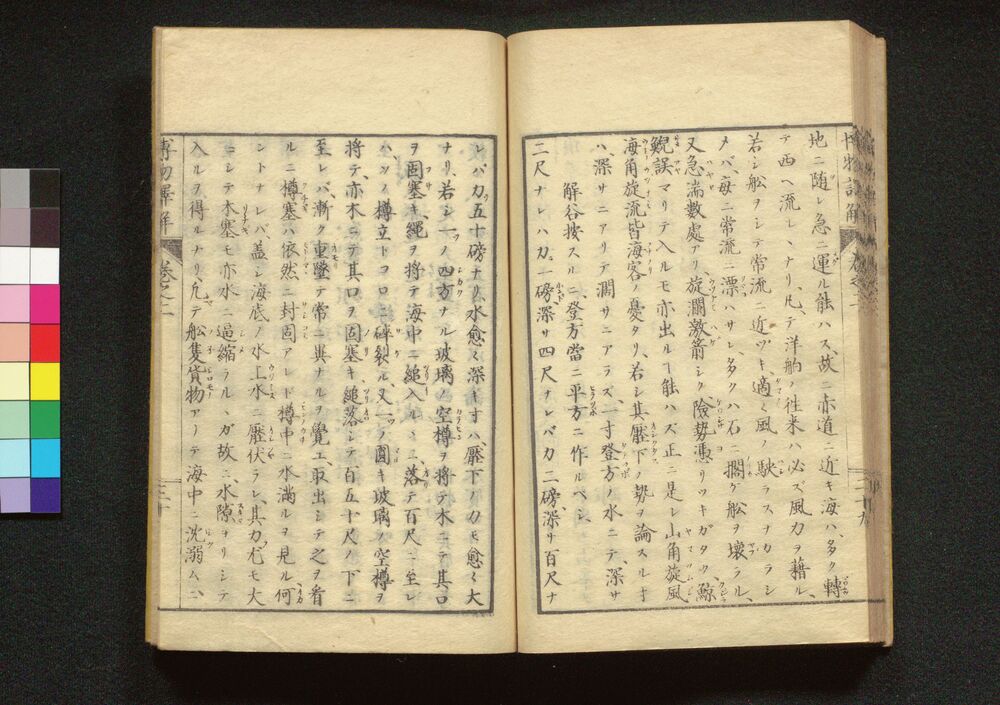 地ニ随レ急ニ運ル能ハス、故ニ亦道ニ近キ海ハ、多ク轉
テ西ヘ流レ、ナリ、凡テ洋舶ノ徃来ハ必ズ風力ヲ藉ル、
若シ舩ヲシテ常流ニ近ヅキ、適々風ノ駛ラスナカラシ
メバ、毎ニ常流ニ漂ハサレ、多クハ石ニ擱ゲ舩ヲ壊ラル、
又急湍數處アリ、旋瀾激箭シク、險勢憑リツキガタク、鯨
鯢誤マリテ入ルモ亦出ルヿ能ハズ正ニ是レ山角旋風
海角旋流皆海客ノ憂タリ、若シ其壓下ノ勢ヲ論スルキ
ハ、深サニアリテ濶サニアラズ、一寸登方ノ水ニテ、深サ
解谷按スルニ、登方當ニ平方ニ作ルベシ、
二尺ナレハ力一磅、深サ四尺ナレバカ二磅、深サ百尺ナ
レバ、力五十磅ナリ、水愈々深キ寸ハ、壓下ノ力モ愈々大
ナリ、若シ一ノ四方ナル玻璃ノ空樽ヲ將テ木ニテ其口
ヲ固塞キ、繩ヲ將テ海中ニ縋入ル、ニ、落テ百尺ニ至レ
ハ、ソノ樽立トコロニ碎裂ル、又一ツノ圓キ玻璃ノ空樽ヲ
將テ、亦木ニテ其口ヲ固塞キ、縋落シテ百五十尺ノ下ニ
至レバ、漸ク重墜テ常ニ異ナルヲ覺エ、取出シテ之ヲ看
ルニ樽塞ハ依然ニ封固アレド樽中ニ水滿ルヲ見ル、何
ントナレバ、蓋シ海底ノ水上水ニ壓伏ラレ、其力尤モ大
ニシテ木塞モ亦水ニ逼縮ラル、ガ故ニ、水隙ヨリシテ
入ルヲ得ルナリ、凡テ舩隻貨物アリテ海中ニ沈溺ム、ニ、
巻之二
三十